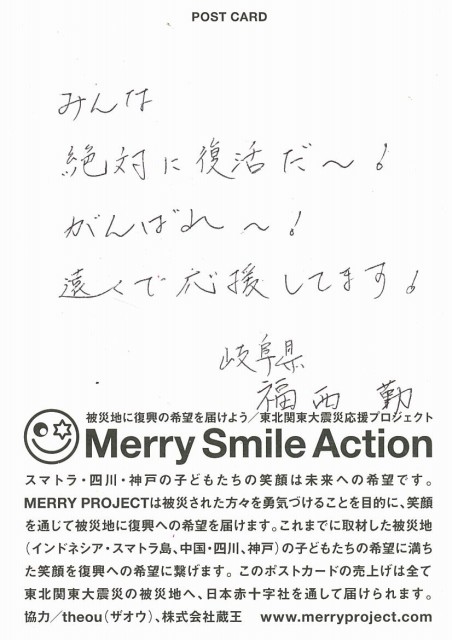 POST CARD
みんな
絶対に復活だ～!
がんばれ～!
遠くで応援してます!
岐阜県
福西 勤
被災地に復興の希望を届けよう/東北関東大震災応援プロジェクト
Merry Smile Action
スマトラ・四川・神戸の子どもたちの笑顔は未来への希望です。
MERRY PROJECTは被災された方々を勇気づけることを目的に、笑顔
を通じて被災地に復興への希望を届けます。これまでに取材した被災地
(インドネシア・スマトラ島、中国・四川、神戸)の子どもたちの希望に満ち
た笑顔を復興への希望に繋げます。このポストカードの売上げは全て
東北関東大震災の被災地へ、日本赤十字社を通して届けられます。
協力/theou(ザオウ)、株式会社蔵王 www.merryproject.com